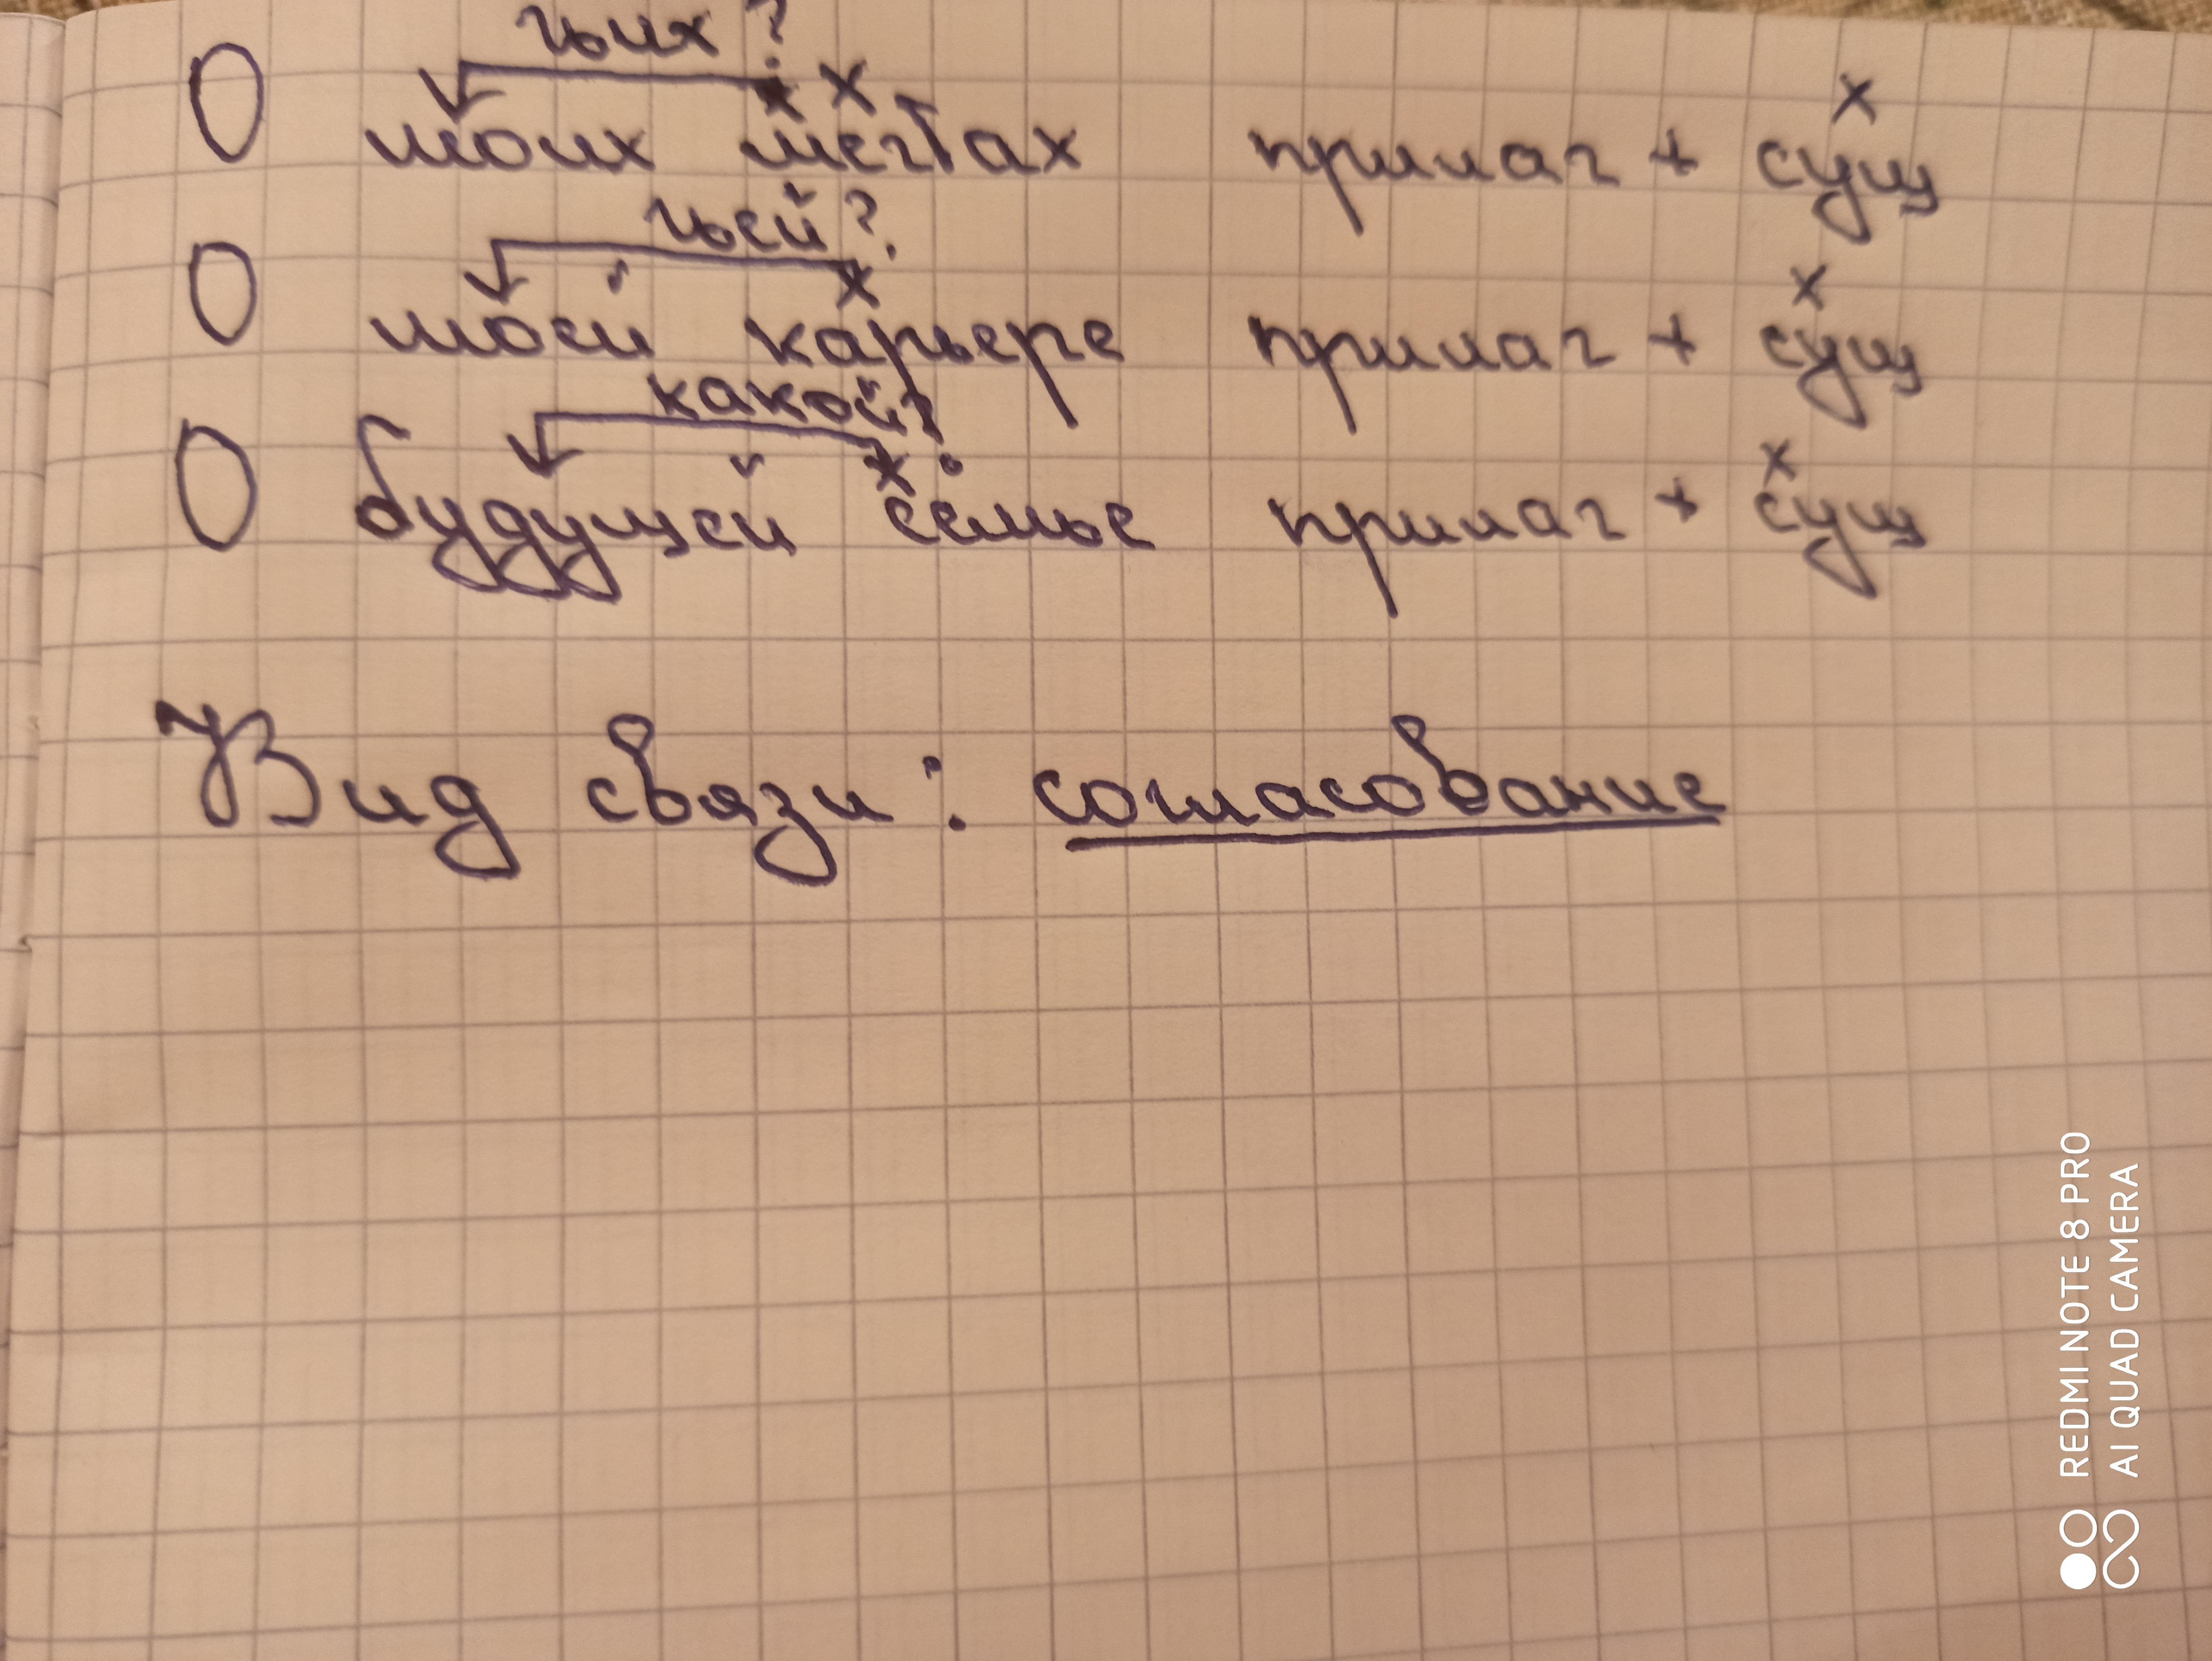 чьих?
О моих мечтах прилаг + сущ
чьей?
О моей карьере прилаг + сущ
какой?
О будущей семье прилаг + сущ
Вид связи: согласование
REDMI NOTE 8 PRO
AI QUAD CAMERA